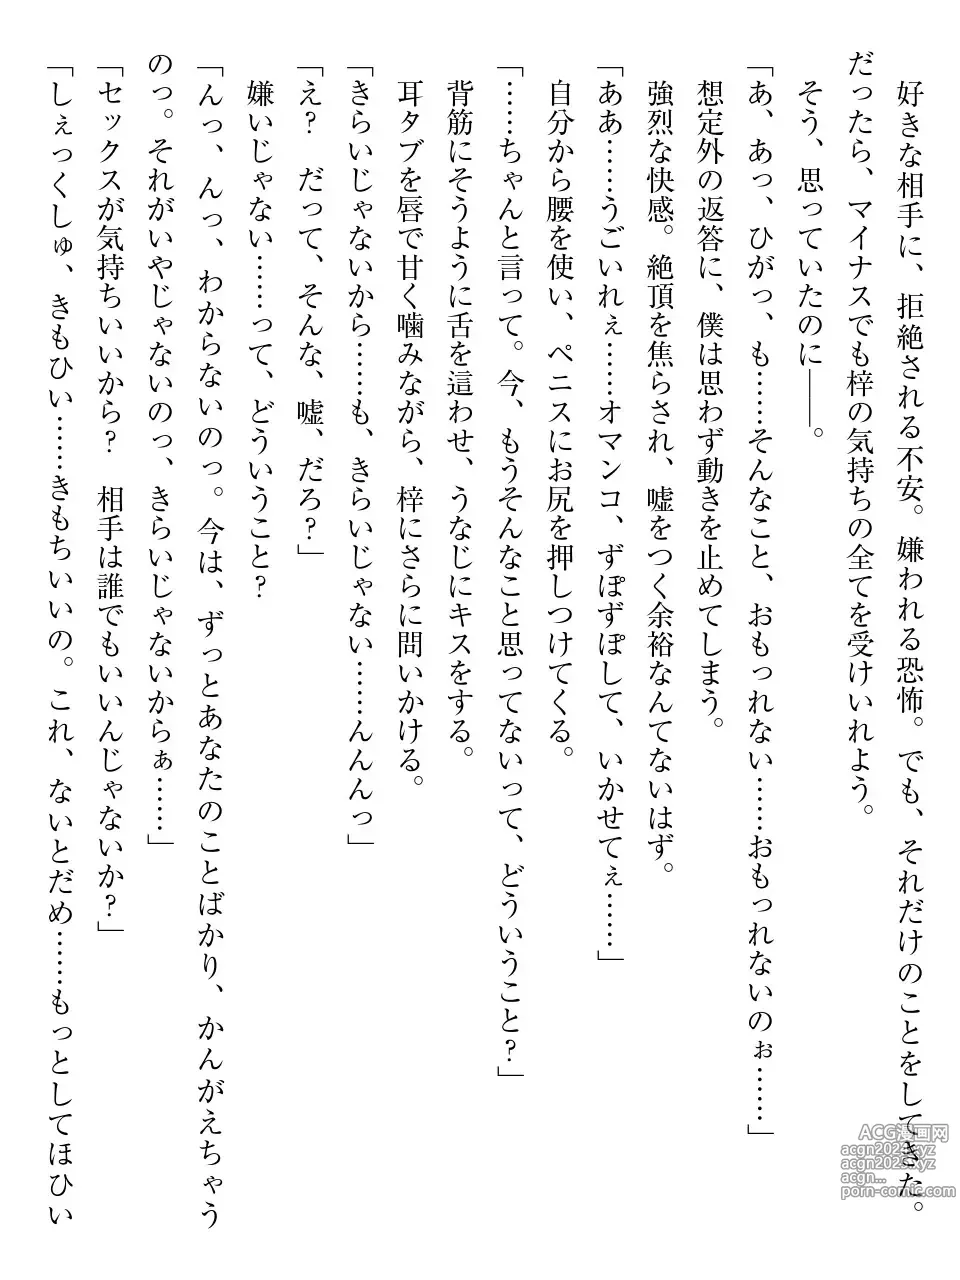 好きな相手に、拒絶される不安。嫌われる恐怖。でも、それだけのことをしてきた。
だったら、マイナスでも梓の気持ちの全てを受けいれよう。
そう、思っていたのに――。
「あ、あっ、ひがっ、も……そんなこと、おもっれない……おもっれないのぉ……」
想定外の返答に、僕は思わず動きを止めてしまう。
強烈な快感。絶頂を焦らされ、嘘をつく余裕なんてないはず。
「ああ……うごいれぇ……オマンコ、ずぽずぽして、いかせてぇ……」
自分から腰を使い、ペニスにお尻を押しつけてくる。
「……ちゃんと言って。今、もうそんなこと思ってないって、どういうこと?」
背筋にそうように舌を這わせ、うなじにキスをする。
耳タブを唇で甘く噛みながら、梓にさらに問いかける。
「きらいじゃないから……も、きらいじゃない……んんんっ」
「え? だって、そんな、嘘、だろ?」
嫌いじゃない……って、どういうこと?
「んっ、んっ、わからないのっ。今は、ずっとあなたのことばかり、かんがえちゃう
のっ。それがいやじゃないのっ、きらいじゃないからぁ……」
「セックスが気持ちいいから? 相手は誰でもいいんじゃないか?」
「しぇっくしゅ、きもひい……きもちいいの。これ、ないとだめ……もっとしてほひい
ACG漫画网
acgn2025.xyz
acgn2023.xyz
porn-comic.com